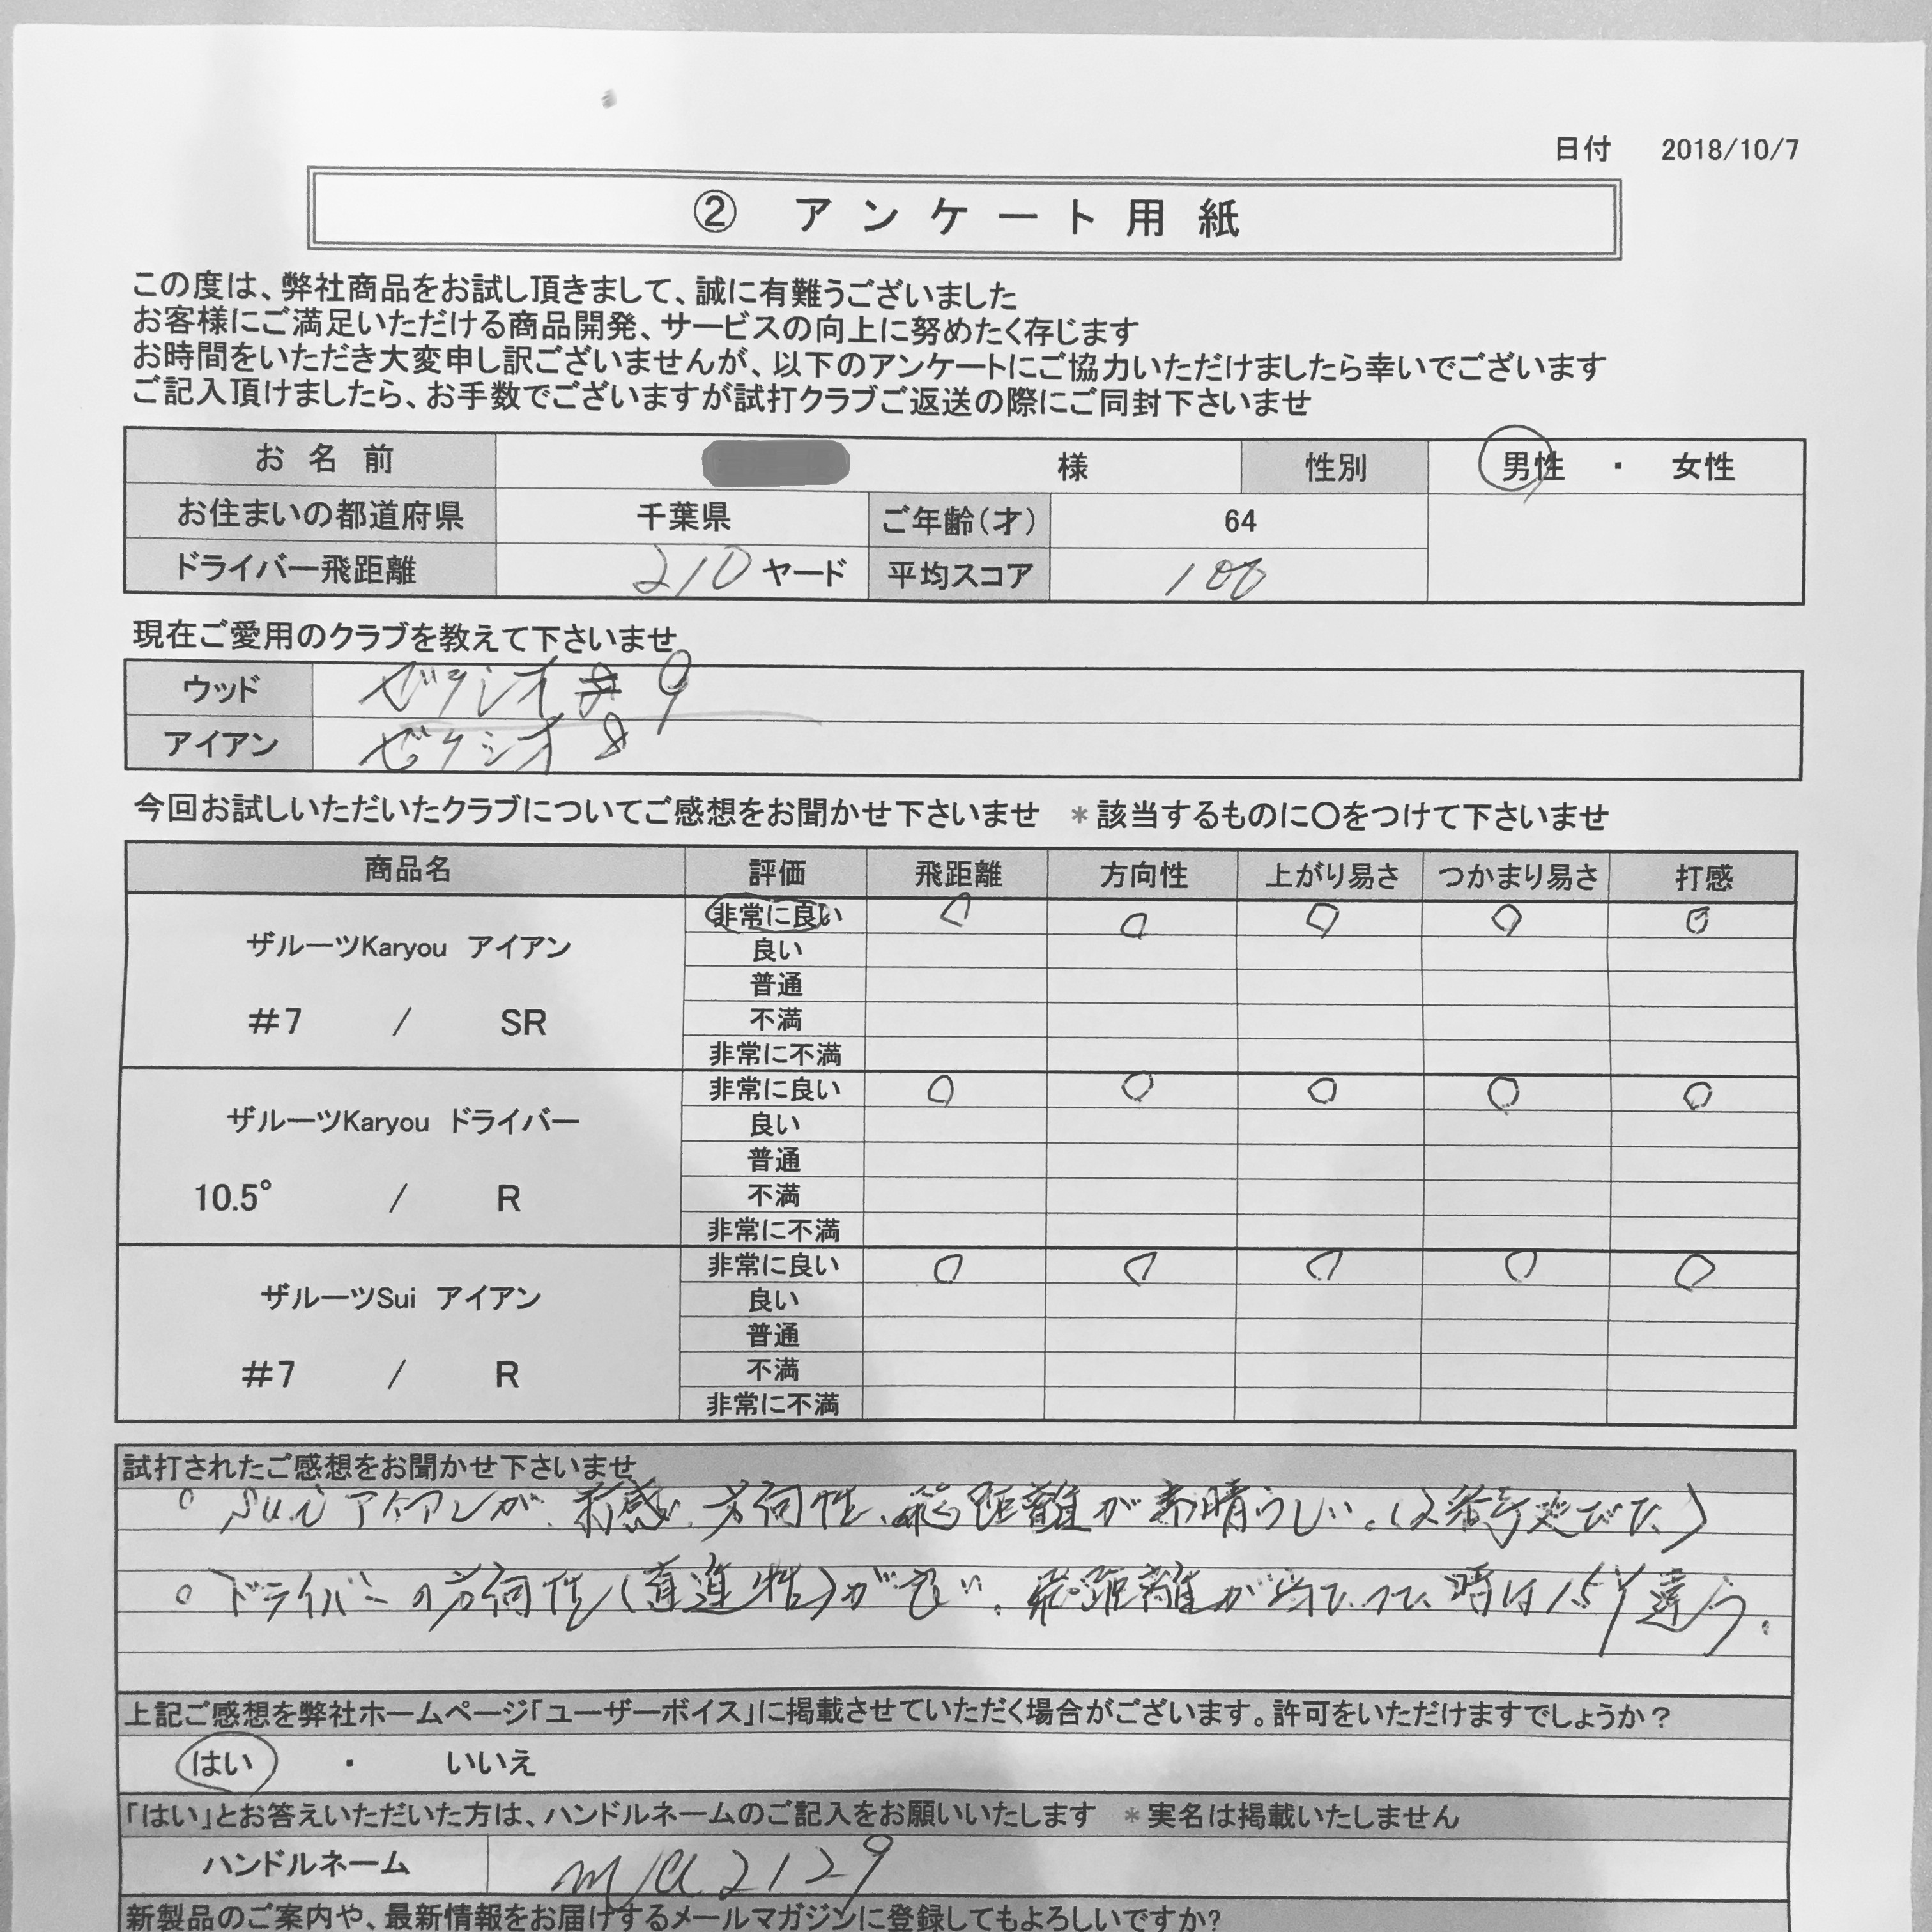 日付 2018/10/7
② アンケート用紙
この度は、弊社商品をお試し頂きまして、誠に有難うございました
お客様にご満足いただける商品開発、サービスの向上に努めたく存じます
お時間をいただき大変申し訳ございませんが、以下のアンケートにご協力いただけましたら幸いでございます
ご記入頂けましたら、お手数でございますが試打クラブご返送の際にご同封下さいませ
お名前 様 性別 男性 ・ 女性
お住まいの都道府県 千葉県 ご年齢(才) 64
ドライバー飛距離 210 ヤード 平均スコア 100
現在ご愛用のクラブを教えて下さいませ
ウッド ゼクシオ # 9
アイアン ゼクシオ 8
今回お試しいただいたクラブについてご感想をお聞かせ下さいませ *該当するものに〇をつけて下さいませ
商品名 評価 飛距離 方向性 上がり易さ つかまり易さ 打感
ザルーツKaryou アイアン
#7 / SR
非常に良い ○ ○ ○ ○ ○
良い
普通
不満
非常に不満
ザルーツKaryou ドライバー
10.5° / R
非常に良い ○ ○ ○ ○ ○
良い
普通
不満
非常に不満
ザルーツSui アイアン
#7 / R
非常に良い ○ ○ ○ ○ ○
良い
普通
不満
非常に不満
試打されたご感想をお聞かせ下さいませ
○ Sui アイアンが、打感、方向性、飛距離が素晴らしい。(2番手延びた)
○ ドライバーの方向性(直進性)が良い。飛距離が当たった時は15Y違う。
上記ご感想を弊社ホームページ「ユーザーボイス」に掲載させていただく場合がございます。許可をいただけますでしょうか?
はい ・ いいえ
「はい」とお答えいただいた方は、ハンドルネームのご記入をお願いいたします *実名は掲載いたしません
ハンドルネーム
新製品のご案内や、最新情報をお届けするメールマガジンに登録してもよろしいですか?